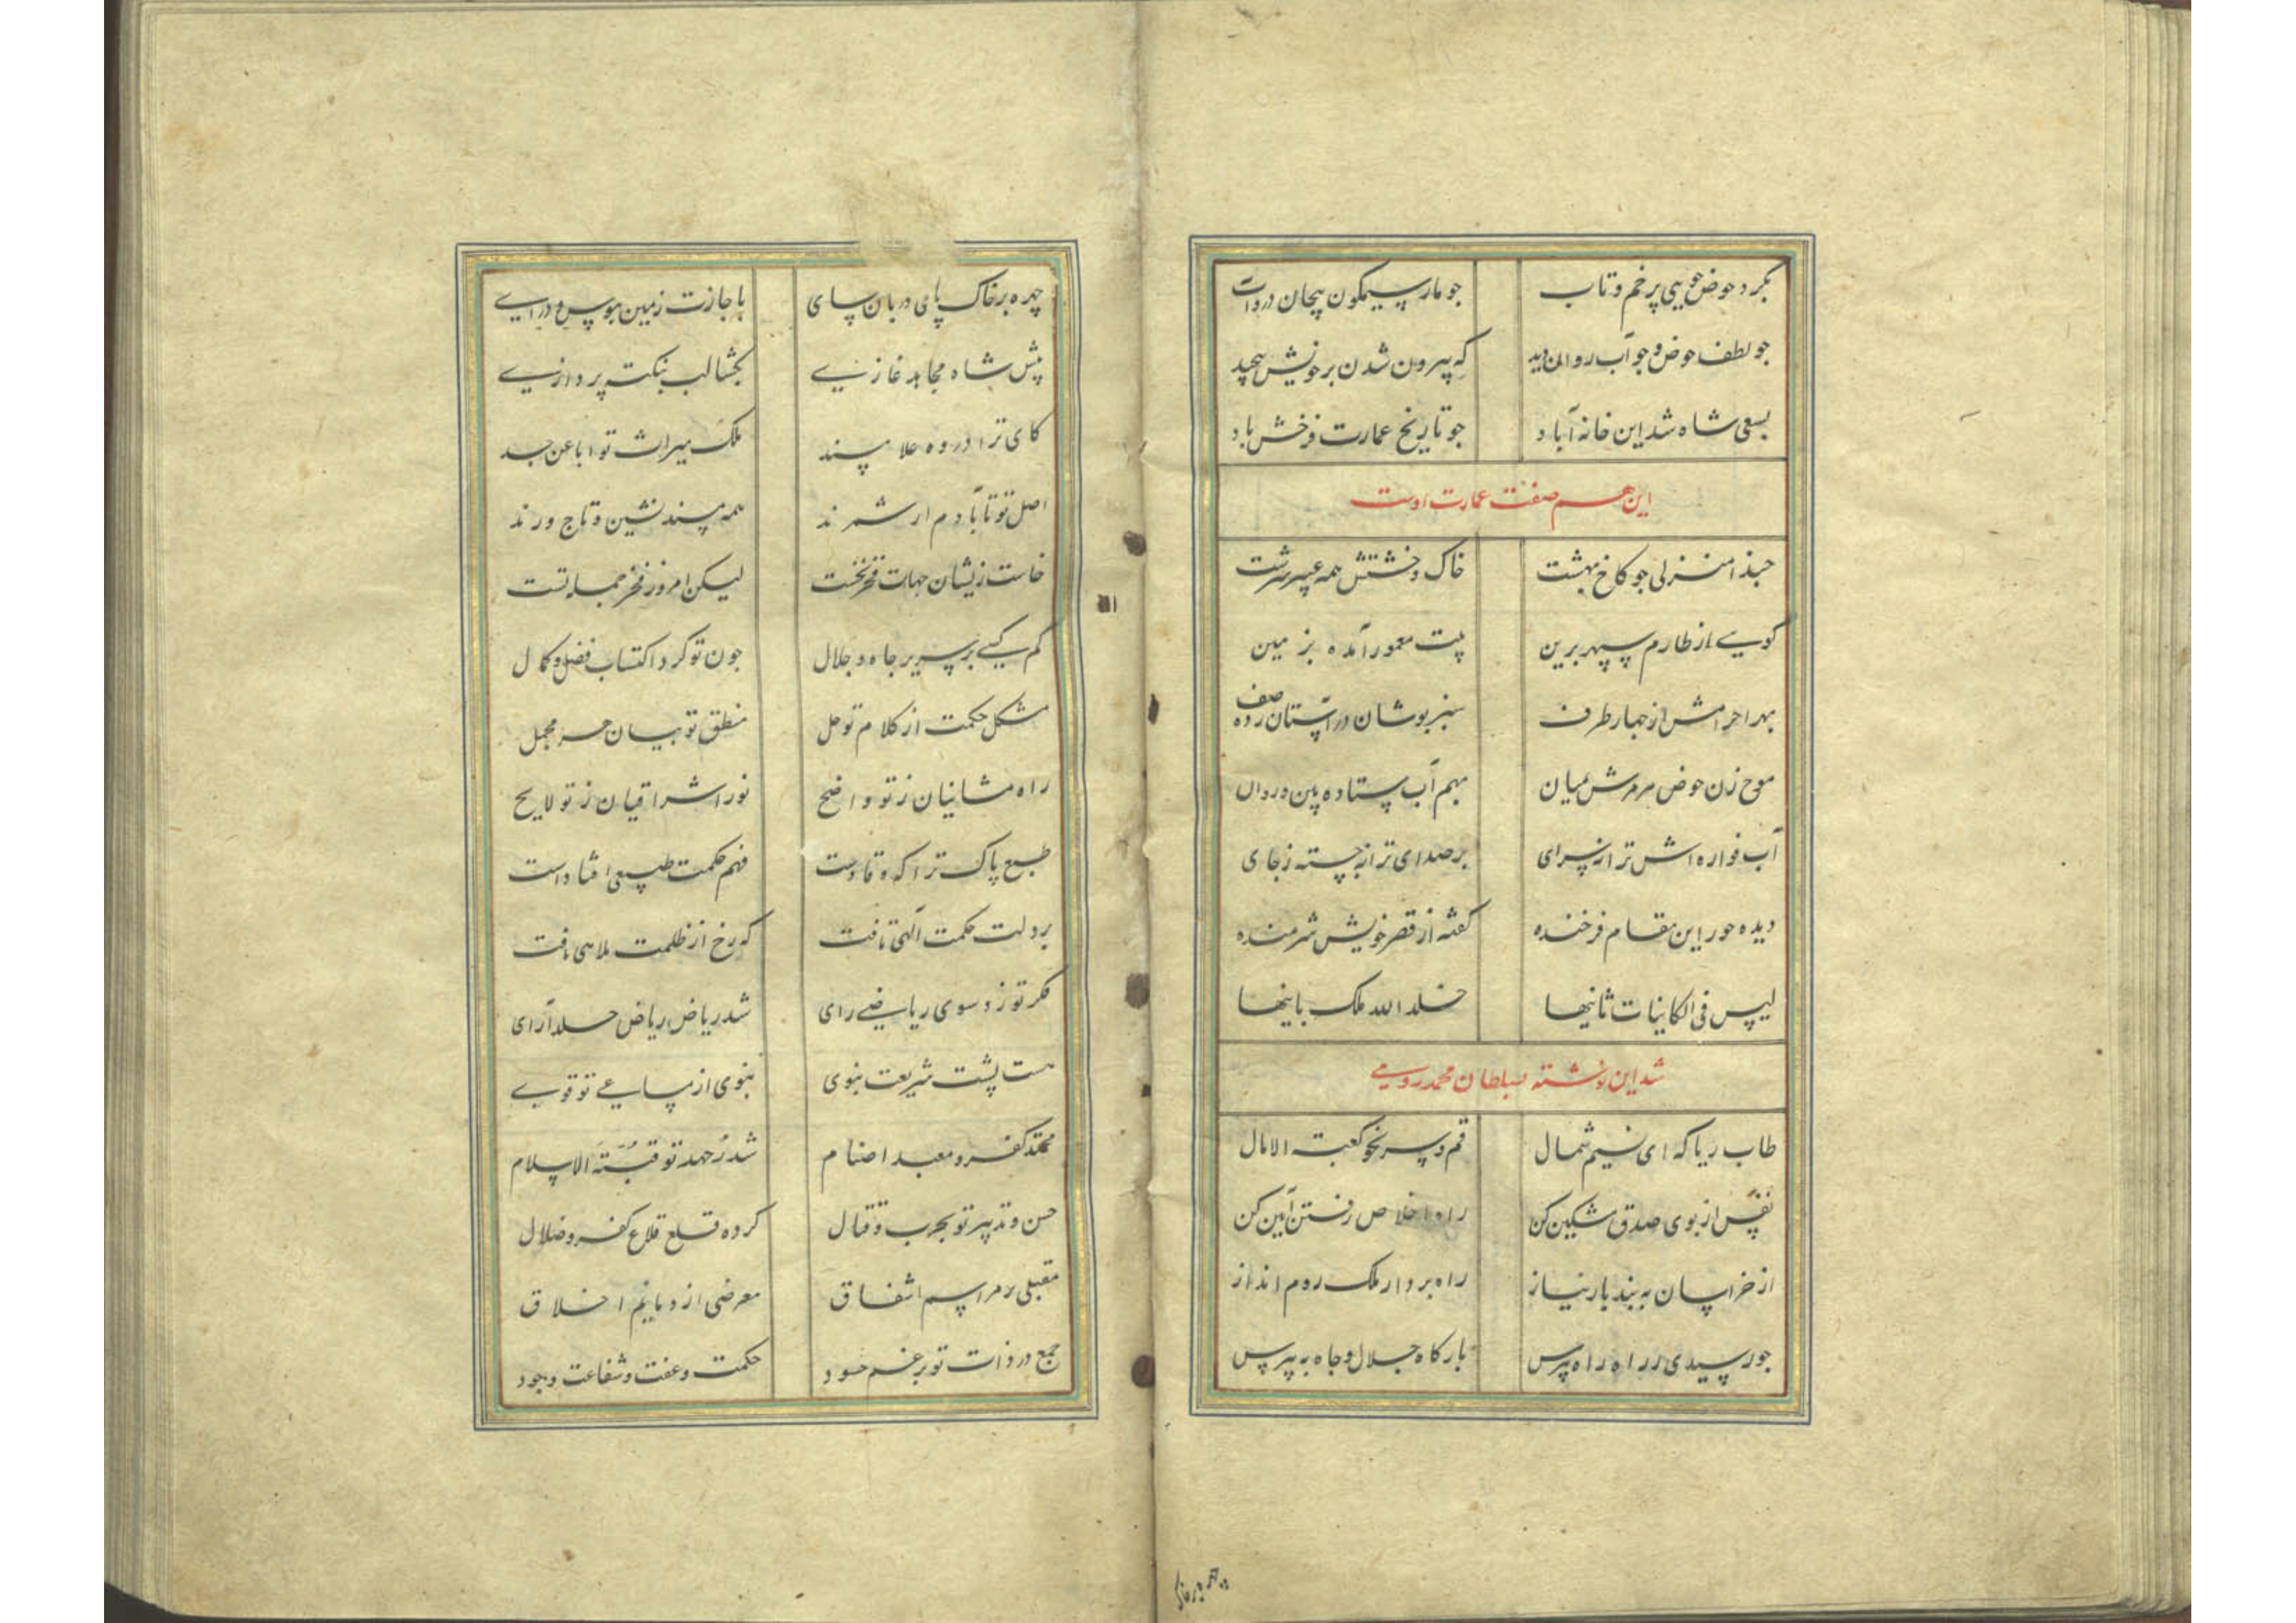 بکرد حوض جویی پر خم و تاب جو مار سیمکون پیجان در آب
جو لطف حوض و جو آب روان دید که پیرون شدن بر خویش پیچید
بسعی شاه شد این خانه آباد جو تاریخ عمارت فرخش باد
این هم صفت عمارت اوست
حبذا منزلی جو کاخ بهشت خاک و خشتش همه عبیر سرشت
کویی از طارم سپهر برین بیت معمور آمده بزمین
بهر احرامش از جهار طرف سبز پوشان در آستان زده صف
موج زن حوض مرمرش بمیان بهم آب ستاده بین و روان
آب فواره اش ترانه سرای بر صدای ترانه جسته ز جای
دیده حور این مقام فرخنده کفته از قصر خویش شرمنده
لیس فی الکاینات ثانیها خلد الله ملک بانیها
شد این نوشته بسلطان محمد رومی
طاب ریاک ای نسیم شمال قم و سر نحو کعبة الامال
نفس از بوی صدق مشکین کن راه اخلاص رفتن آیین کن
از خراسان به بند بار نیاز راه بردار ملک روم انداز
جو رسیدی در راه راه بپرس بارکاه جلال و جاه بپرس
چهره بر خاک پای دربان سای باجازت زمین ببوس و درآی
پیش شاه مجاهد غازی بکشا لب بنکته پردازی
کای ترا در وه علا مسند ملک میراث تو ابا عن جد
اصل تو تا بآدم ار شمرند همه مسند نشین و تاج ورند
خاست زیشان جهات فخر نخست لیکن امروز فخر جمله تست
کم کسی بر سریر جاه و جلال جون تو کرد اکتساب فضل و کمال
مشکل حکمت از کلام تو حل منطق تو بیان هر مجمل
راه مشائیان ز تو واضح نور اشراقیان ز تو لایح
طبع پاک ترا که وقادست فهم حکمت طبیعی افتادست
بر دلت حکمت الهی تافت که رخ از ظلمت ملاهی تافت
فکر تو زد سوی ریاضی رای شد ریاض ریاض خلد آرای
هست پشت شریعت نبوی نبوی از مساعی تو قوی
محتد کفر و معبد اصنام شد ز جهد تو قبة الاسلام
حسن و تدبیر تو بحرب و قتال کرده قلع قلاع کفر و ضلال
مقبلی بر مراسم اشفاق معرضی از دمایم اخلاق
جمع در ذات تو برغم حسود حکمت و عفت و شفاعت وجود
چهره بر خاک